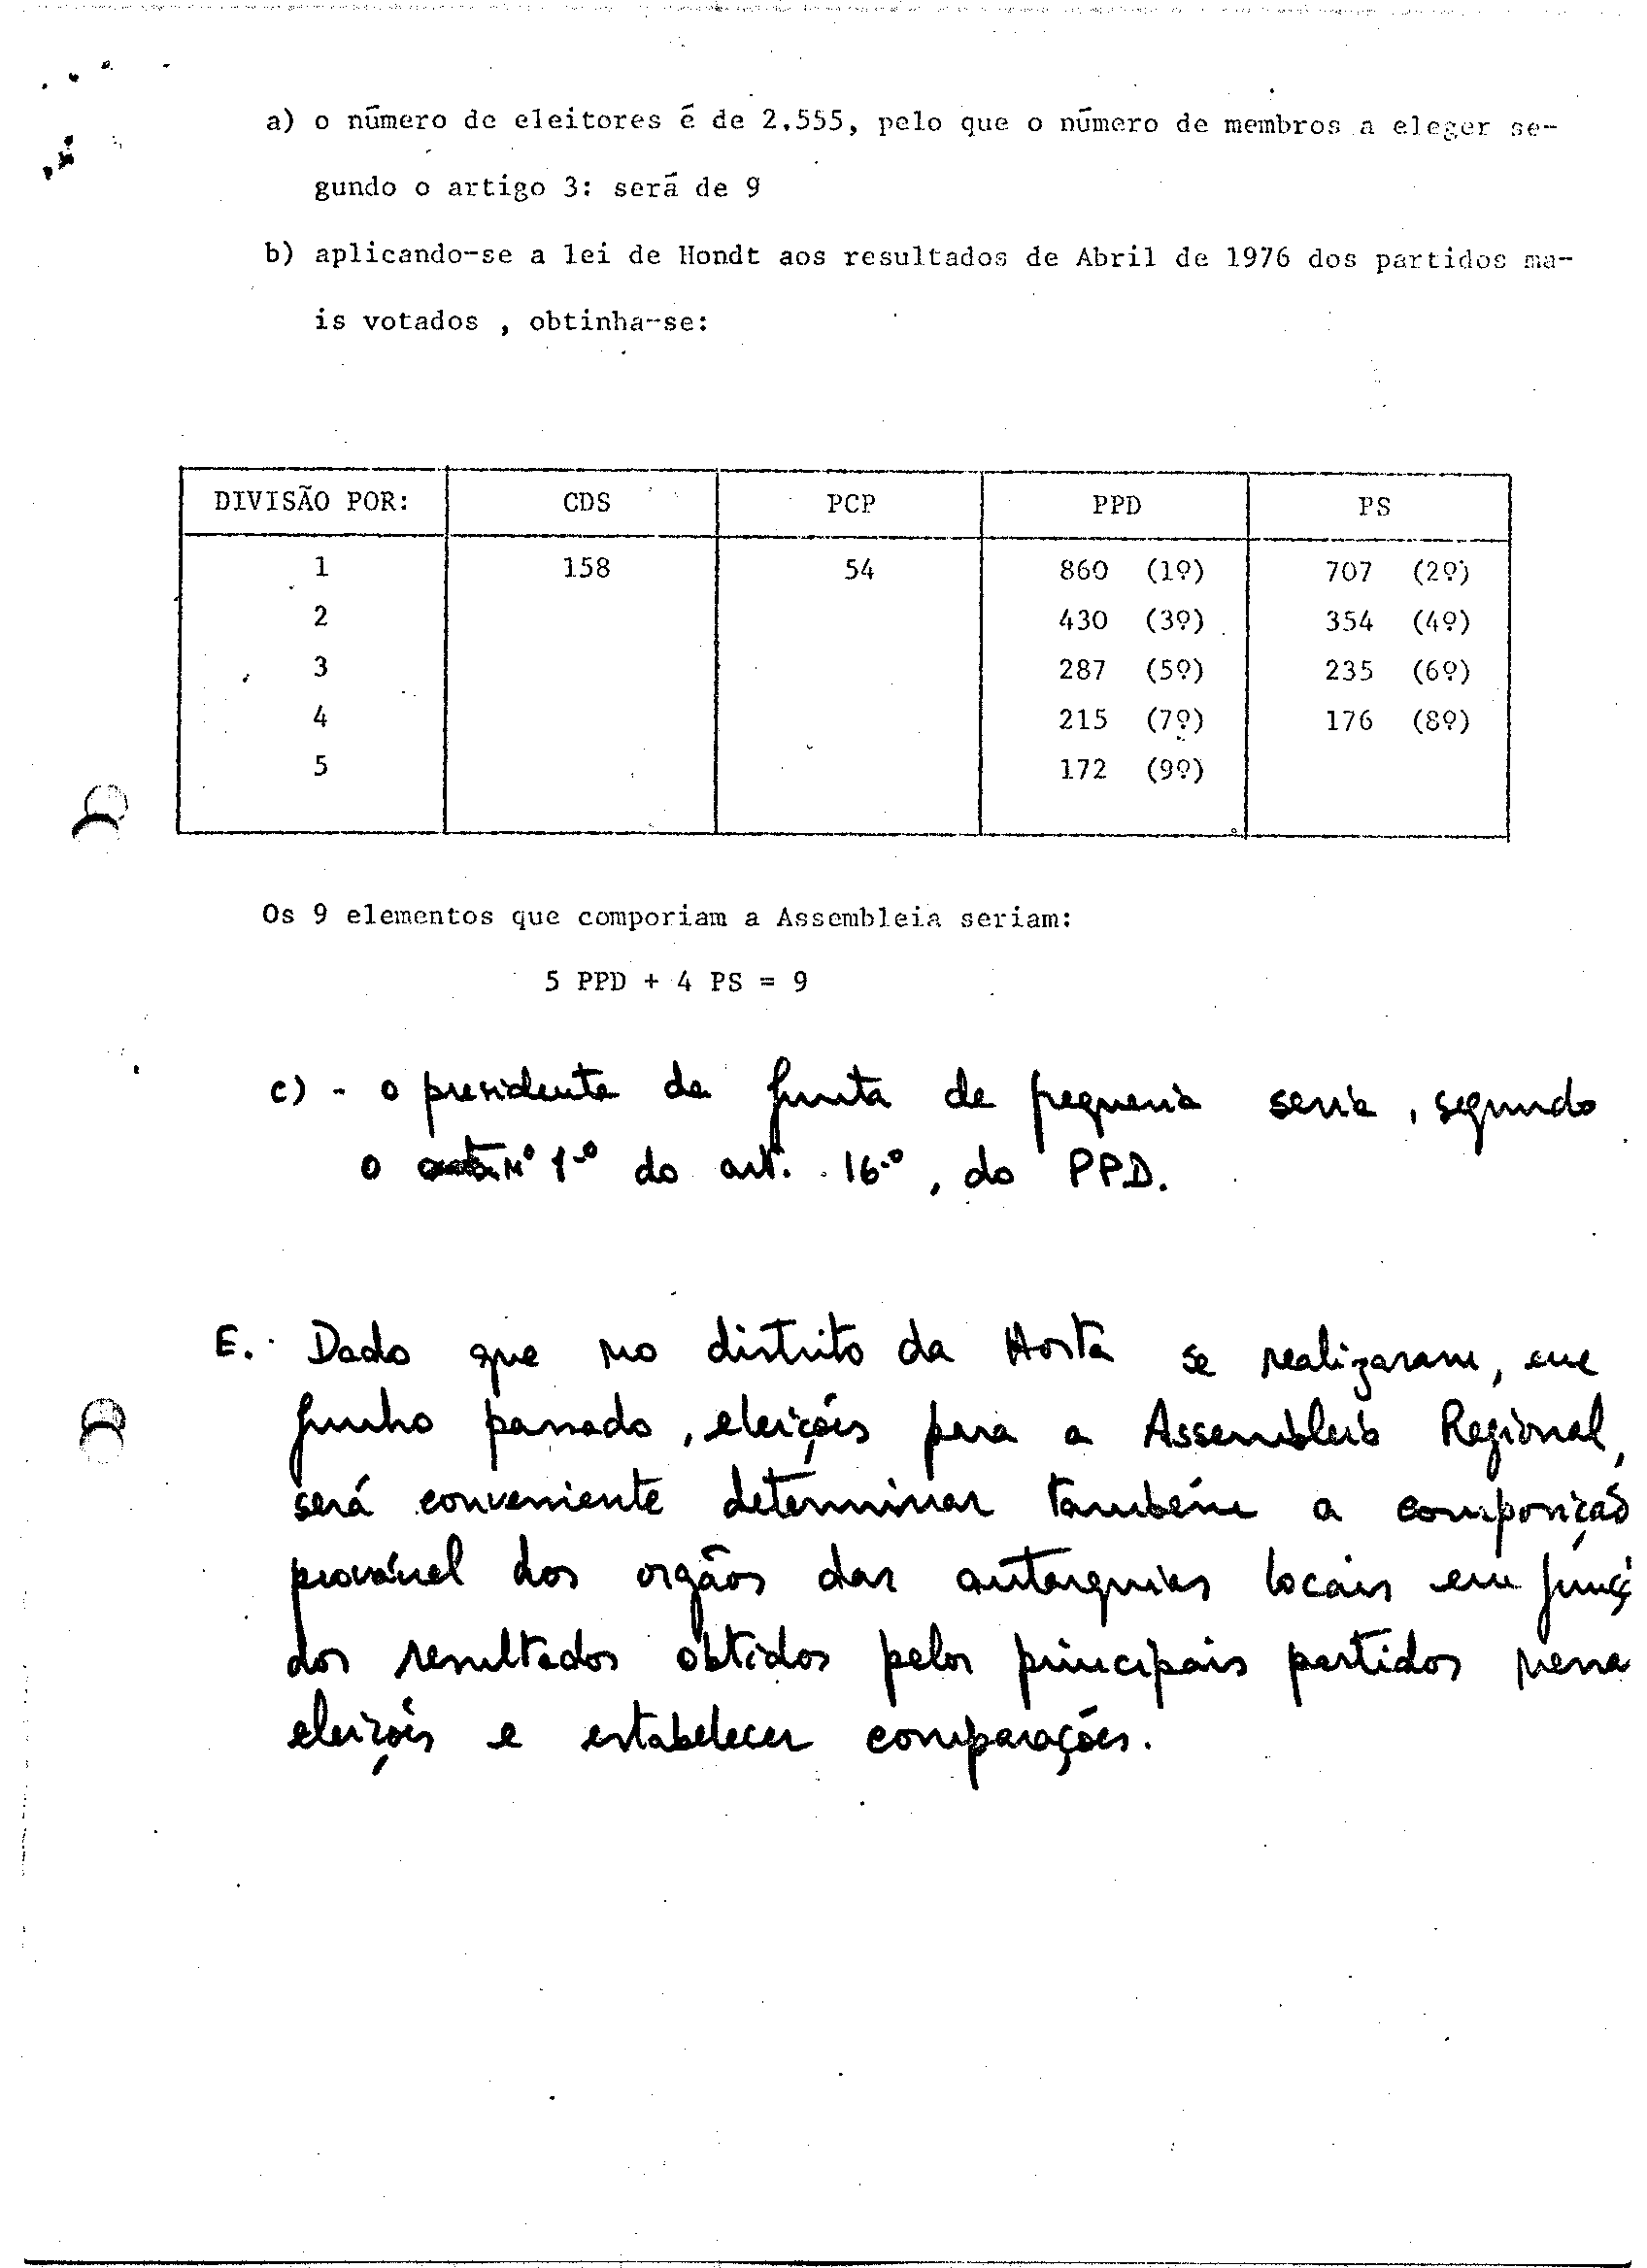 a) o número de eleitores é de 2.555, pelo que o número de membros a eleger se-
gundo o artigo 3: será de 9
b) aplicando-se a lei de Hondt aos resultados de Abril de 1976 dos partidos ma-
is votados , obtinha-se:
DIVISÃO POR: CDS PCP PPD PS
1 158 54 860 (1º) 707 (2º)
2 430 (3º) 354 (4º)
3 287 (5º) 235 (6º)
4 215 (7º) 176 (8º)
5 172 (9º)
Os 9 elementos que comporiam a Assembleia seriam:
5 PPD + 4 PS = 9
c) - o presidente da junta de freguesia seria, segundo
o nº 1.º do art. 16.º, do PPD.
E. Dado que no distrito da Horta se realizaram, em
Junho passado, eleições para a Assembleia Regional,
será conveniente determinar também a composição
provável dos orgãos das autarquias locais em funç
dos resultados obtidos pelos principais partidos nessa
eleições e estabelecer comparações.